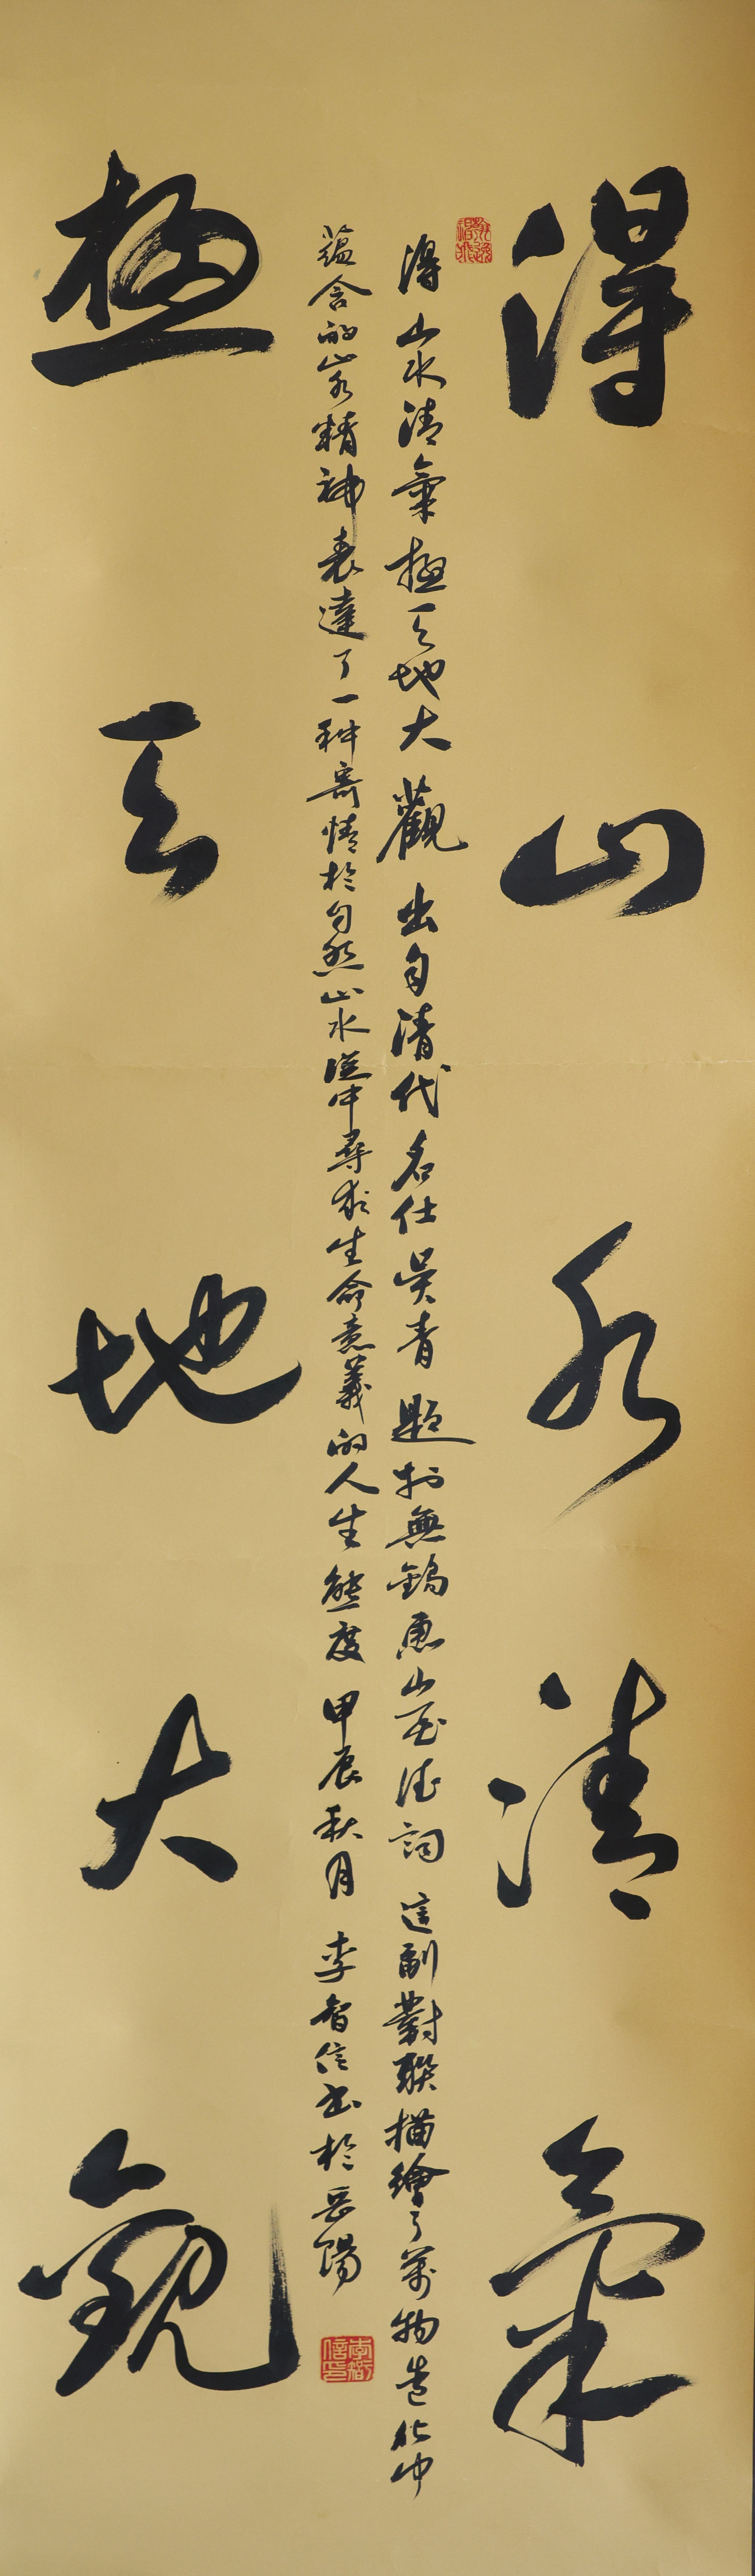 得山水清氣
得山水清氣極天地大觀出自清代名仕吳青題於無錫惠山至德祠這副對聯描繪了萬物造化中
蘊含的山水精神表達了一種寄情於自然山水從中尋求生命意義的人生態度甲辰秋月李智信書於岳陽
極天地大觀
李智信印